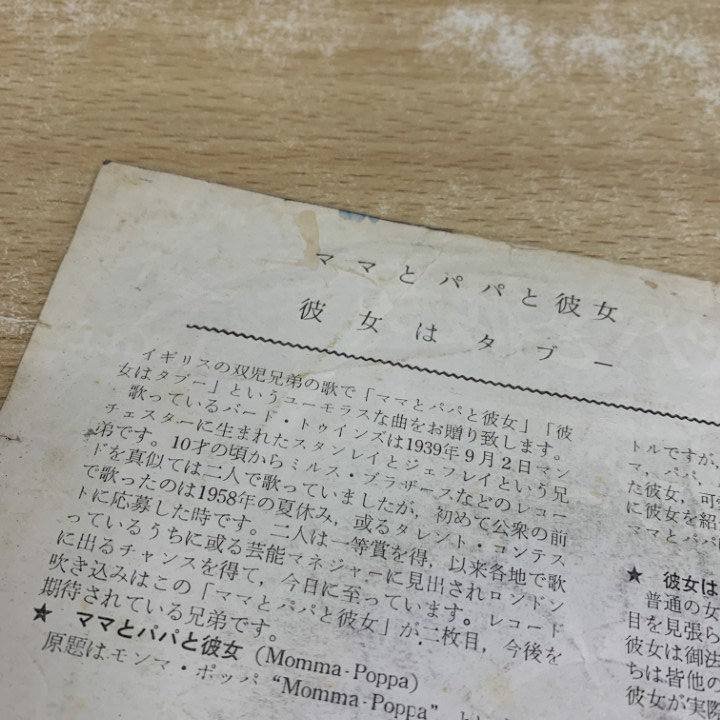 ママとパパと彼女
彼女はタブー
イギリスの双児兄弟の歌で「ママとパパと彼女」「彼
女はタブー」というユーモラスな曲をお贈り致します。
歌っているバード・トゥインズは1939年9月2日マン
チェスターに生まれたスタンレイとジェフレイという兄
弟です。10才の頃からミルス・ブラザースなどのレコー
ドを真似ては二人で歌っていましたが,初めて公衆の前
で歌ったのは1958年の夏休み,或るタレント・コンテス
トに応募した時です。二人は一等賞を得,以来各地で歌
っているうちに或る芸能マネジャーに見出されロンドン
に出るチャンスを得て,今日に至っています。レコード
吹き込みはこの「ママとパパと彼女」が二枚目,今後を
期待されている兄弟です。
★ ママとパパと彼女 (Momma-Poppa)
原題はモンマ・ポッパ “Momma-Poppa”
トルですが,
マ,パパ,
た彼女,可
に彼女を紹
ママとパパ
★ 彼女は
普通の女
目を見張ら
彼女は御法
ちは皆他の
彼女が実際